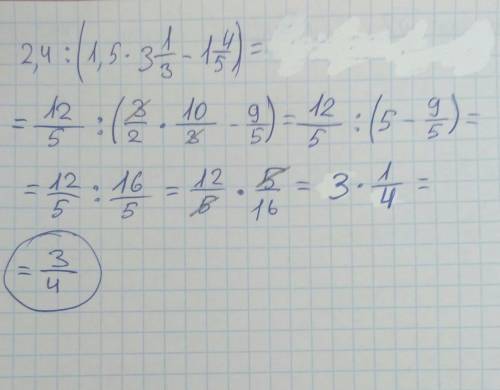 2,4 : (1,5 · 3 1/3 - 1 4/5) =
= 12/5 : (3/2 · 10/3 - 9/5) = 12/5 : (5 - 9/5) =
= 12/5 : 16/5 = 12/5 · 5/16 = 3 · 1/4 =
= 3/4